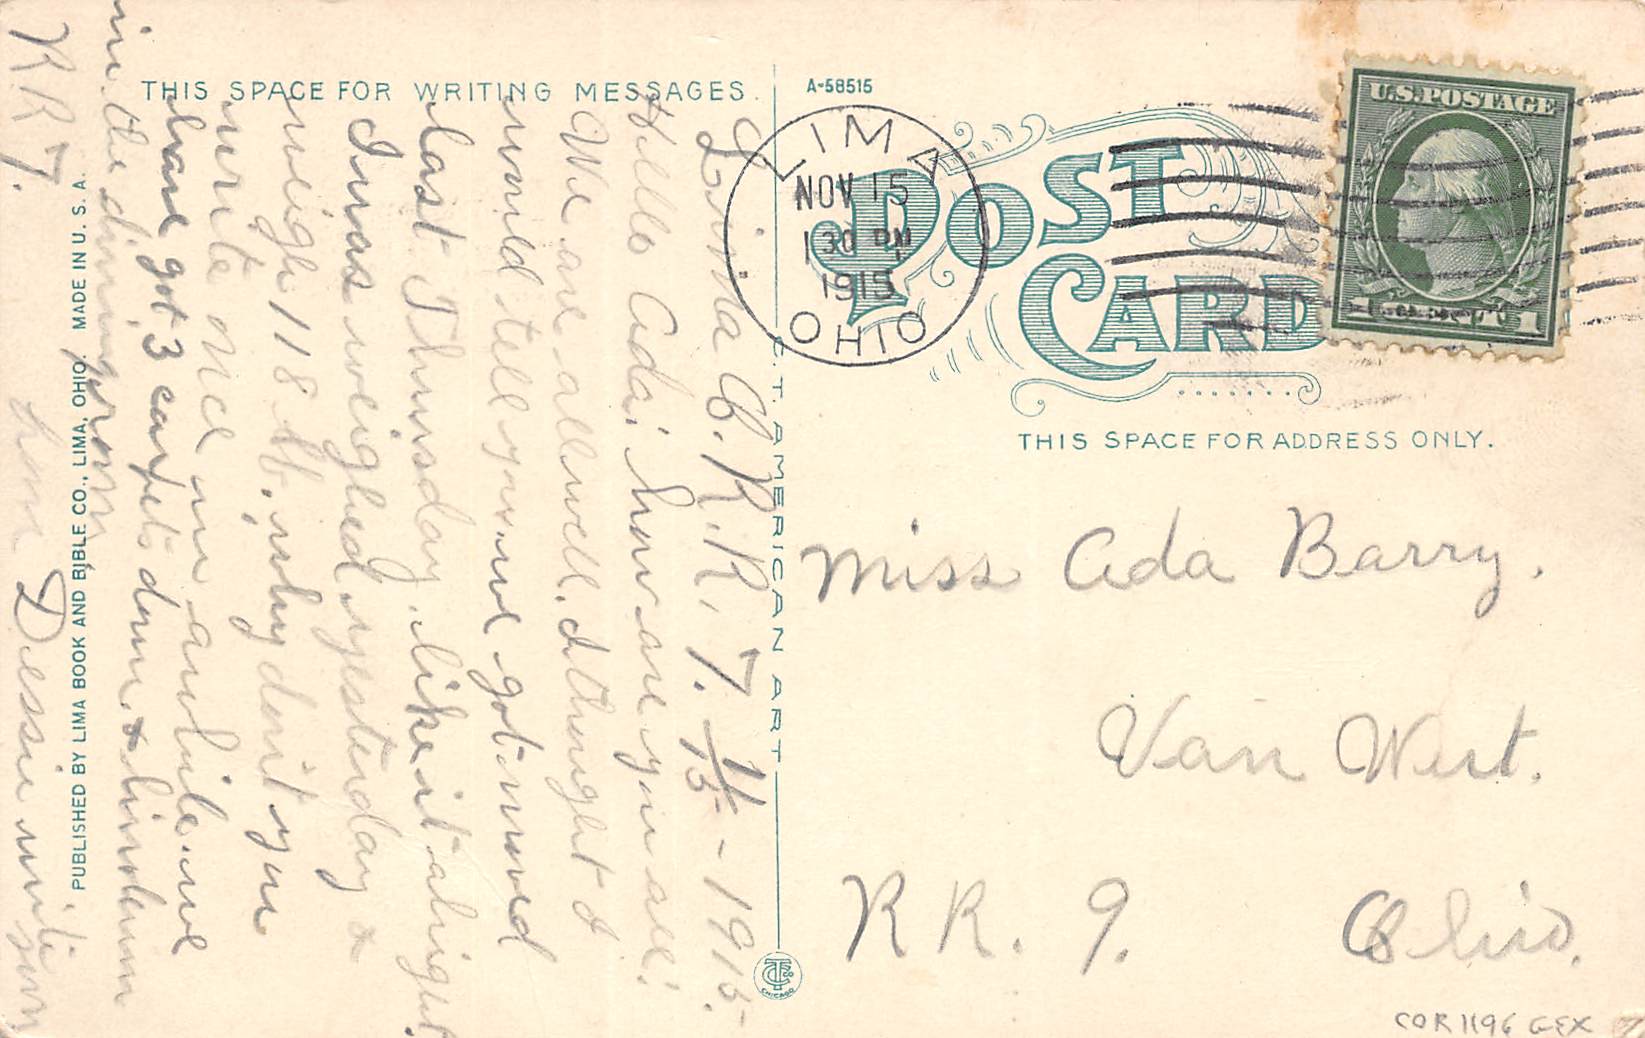 THIS SPACE FOR WRITING MESSAGES.
A-58515
POST CARD
THIS SPACE FOR ADDRESS ONLY.
LIMA
NOV 15
1 30 PM
1915
OHIO
U.S. POSTAGE
1 CENT 1
Lima O. R.R. 7. 11/15 - 1915.
Hello Ada: how are you all:
We are all well. I thought I
would tell you we got moved
last Thursday. like it alright.
I was weighed yesterday &
weigh 118 lb. why don't you
write once in awhile. we
have got 3 carpets down & linoleum
in the diningroom
from Dessie write soon
R R 7.
Miss Ada Barry.
Van Wert.
R R. 9. Ohio.
C.T. AMERICAN ART
CHICAGO
PUBLISHED BY LIMA BOOK AND BIBLE CO., LIMA, OHIO. MADE IN U. S. A.
COR1196 GEX